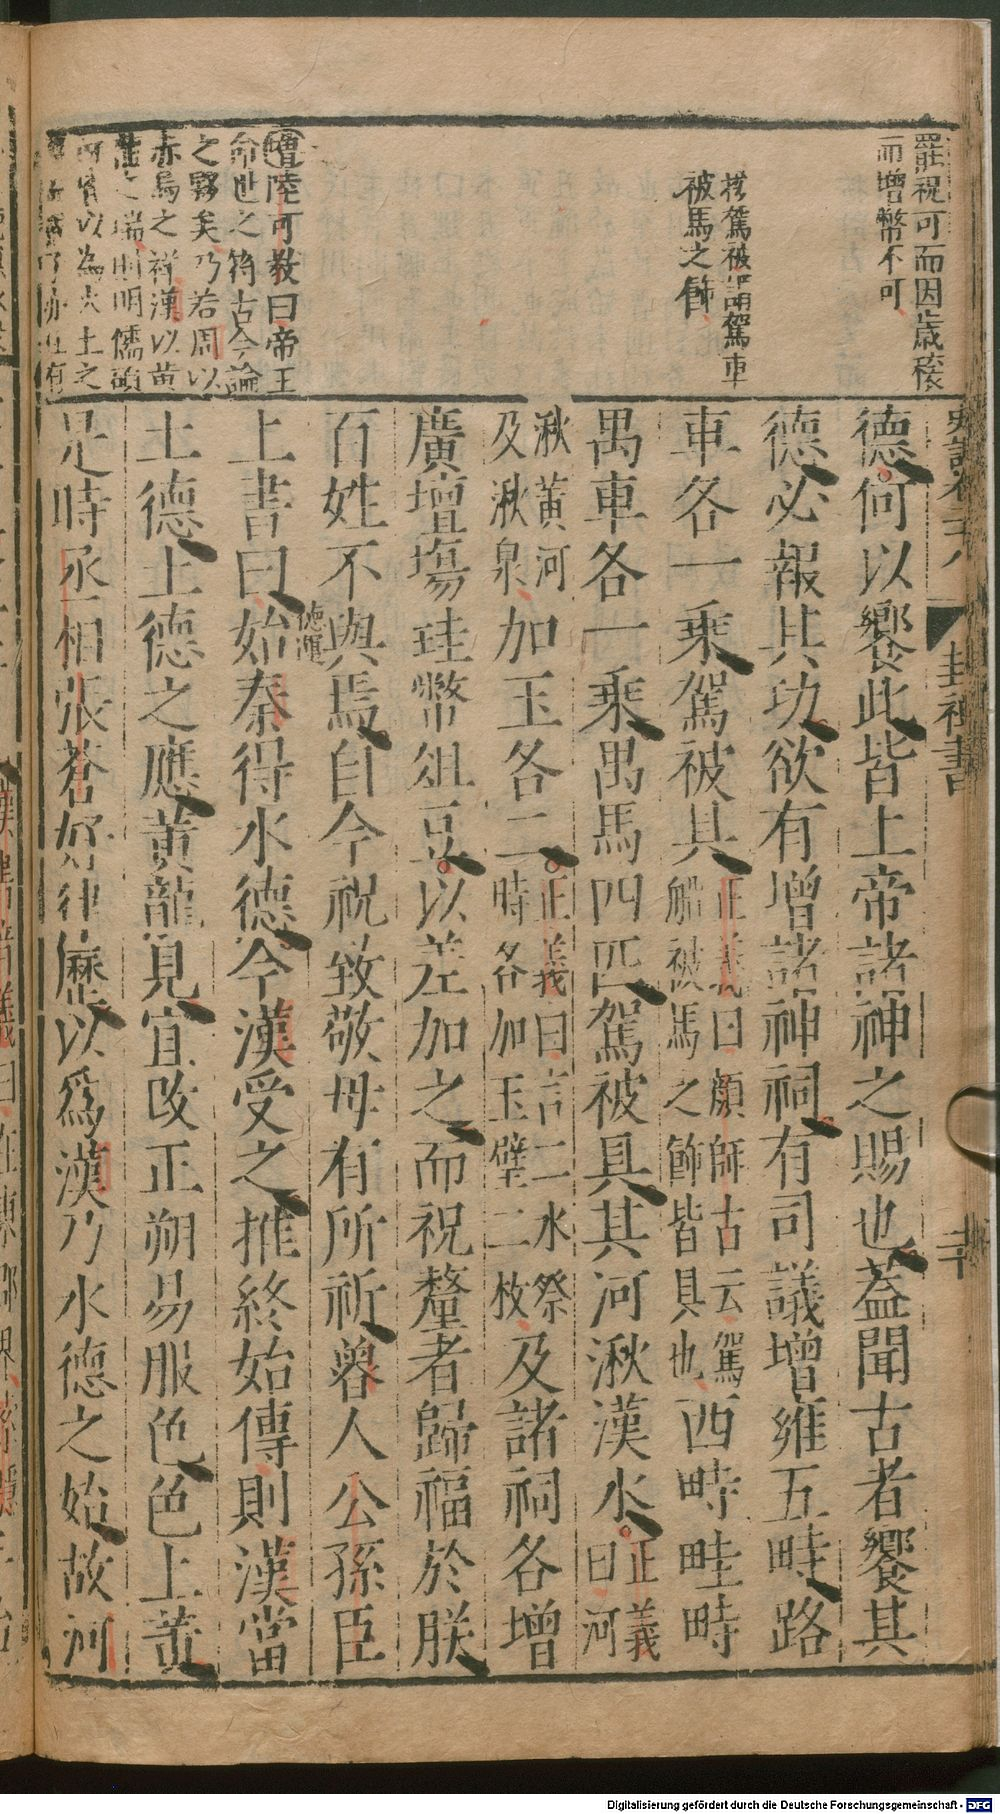 罷祝可而因歲稔
而增幣不可
按駕被謂駕車
被馬之飾
增陸可教曰帝王
命世之符古今論
之夥矣乃若周以
赤烏之祥漢以黃
之瑞則明儒碩
以為火土之
封禪書
德何以饗此皆上帝諸神之賜也蓋聞古者饗其
德必報其功欲有增諸神祠有司議增雍五畤路
車各一乘駕被具
正義曰顏師古云駕
船被馬之飾皆具也
西畤畦畤
禺車各一乘禺馬四匹駕被具其河湫漢水
正義
曰河
湫黃河
及湫泉
加玉各二
正義曰言二水祭
時各加玉璧二枚
及諸祠各增
廣壇場珪幣俎豆以差加之而祝釐者歸福於朕
百姓不與焉自今祝致敬毋有所祈魯人公孫臣
德運
上書曰始秦得水德今漢受之推終始傳則漢當
土德土德之應黃龍見宜改正朔易服色色上黃
是時丞相張蒼好律曆以為漢乃水德之始故河
Digitalisierung gefördert durch die Deutsche Forschungsgemeinschaft - DFG